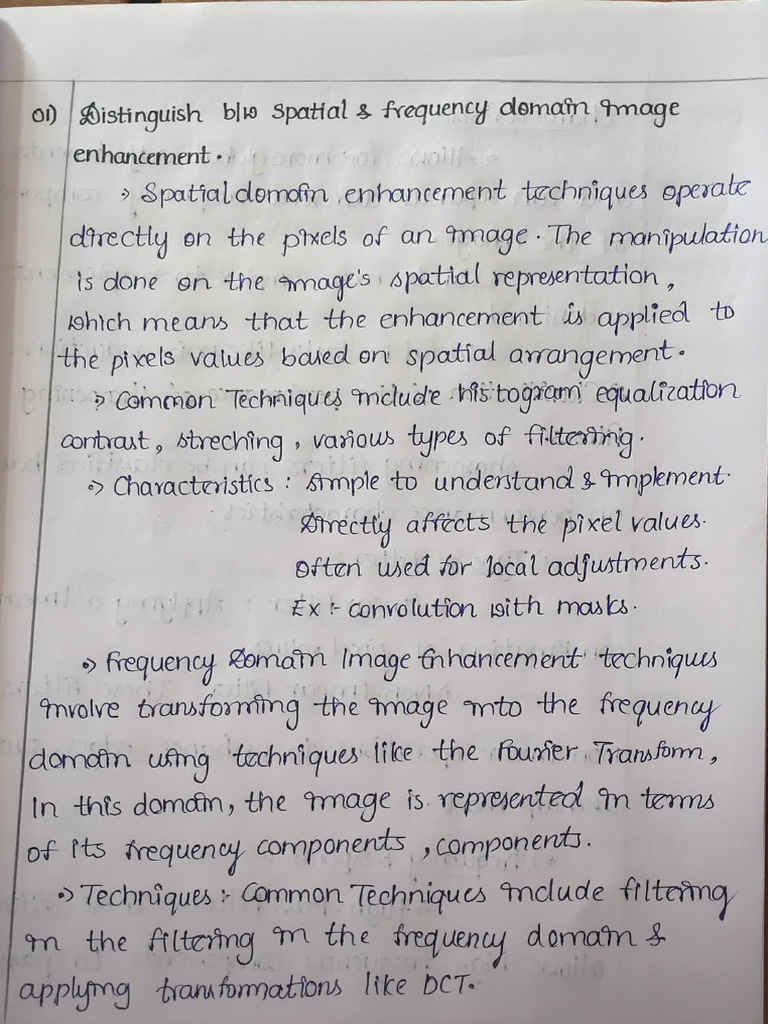 01) Distinguish b/w Spatial & frequency domain image
enhancement.
→ Spatial domain enhancement techniques operate
directly on the pixels of an image. The manipulation
is done on the image's spatial representation,
which means that the enhancement is applied to
the pixels values based on spatial arrangement.
→ Common Techniques include histogram equalization
contrast, streching, various types of filtering.
→ Characteristics : Simple to understand & implement.
Directly affects the pixel values.
Often used for local adjustments.
Ex :- convolution with masks.
→ Frequency Domain Image Enhancement techniques
involve transforming the image into the frequency
domain using techniques like the Fourier Transform,
In this domain, the image is represented in terms
of its frequency components, components.
→ Techniques :- Common Techniques include filtering
in the filtering in the frequency domain &
applying transformations like DCT.